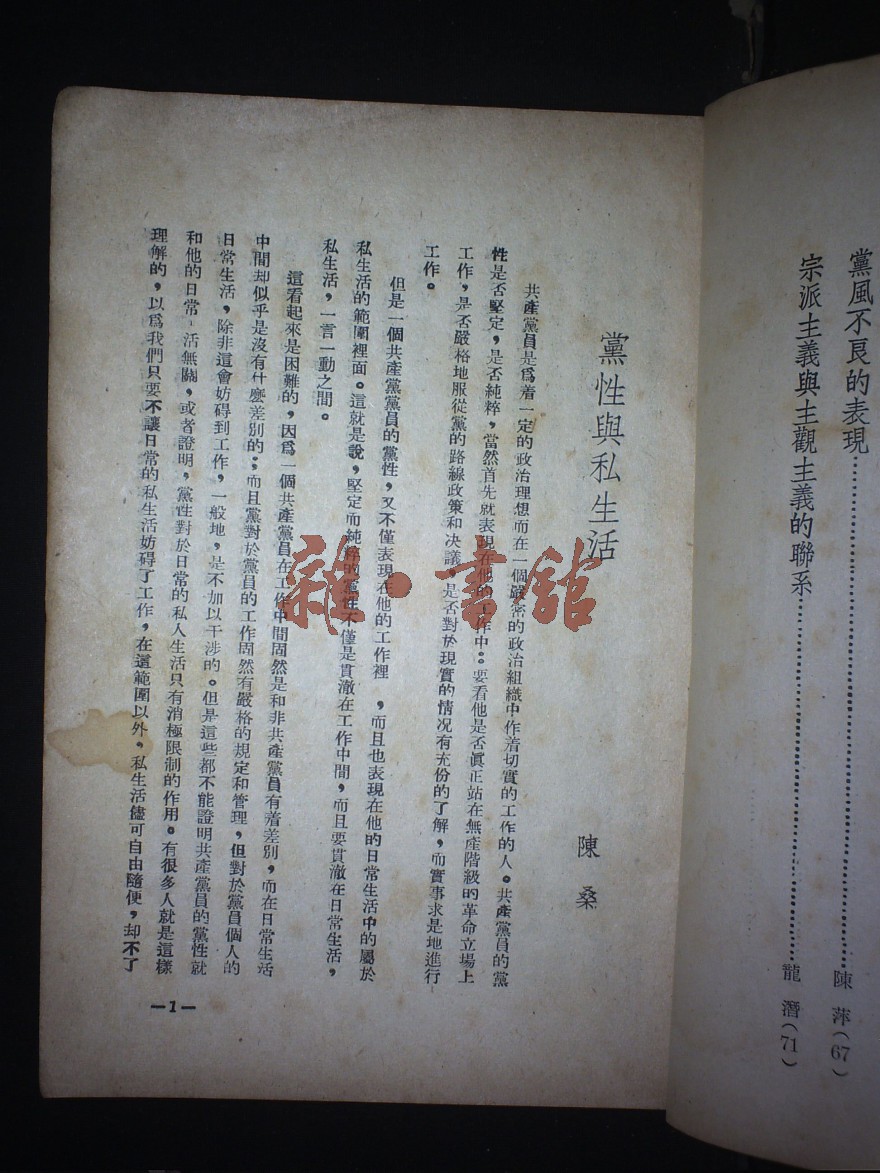 黨風不良的表現……………………………陳萍(67)
宗派主義與主觀主義的聯系……………………………龍潛(71)
黨性與私生活
陳桑
共產黨員是爲着一定的政治理想而在一個嚴密的政治組織中作着切實的工作的人。共產黨員的黨
性是否堅定，是否純粹，當然首先就表現在他的工作中：要看他是否眞正站在無產階級的革命立場上
工作，是否嚴格地服從黨的路線政策和决議，是否對於現實的情况有充份的了解，而實事求是地進行
工作。
但是一個共產黨黨員的黨性，又不僅表現在他的工作裡，而且也表現在他的日常生活中的屬於
私生活的範圍裡面。這就是說，堅定而純粹的黨性不僅是貫澈在工作中間，而且要貫澈在日常生活，
私生活，一言一動之間。
這看起來是困難的，因爲一個共產黨員在工作中間固然是和非共產黨員有着差別，而在日常生活
中間却似乎是沒有什麼差別的；而且黨對於黨員的工作固然有嚴格的規定和管理，但對於黨員個人的
日常生活，除非這會妨碍到工作，一般地，是不加以干涉的。但是這些都不能證明共產黨員的黨性就
和他的日常 活無關，或者證明，黨性對於日常的私人生活只有消極限制的作用。有很多人就是這樣
理解的，以爲我們只要不讓日常的私生活妨碍了工作，在這範圍以外，私生活儘可自由隨便，却不了
—1—
雜·書館